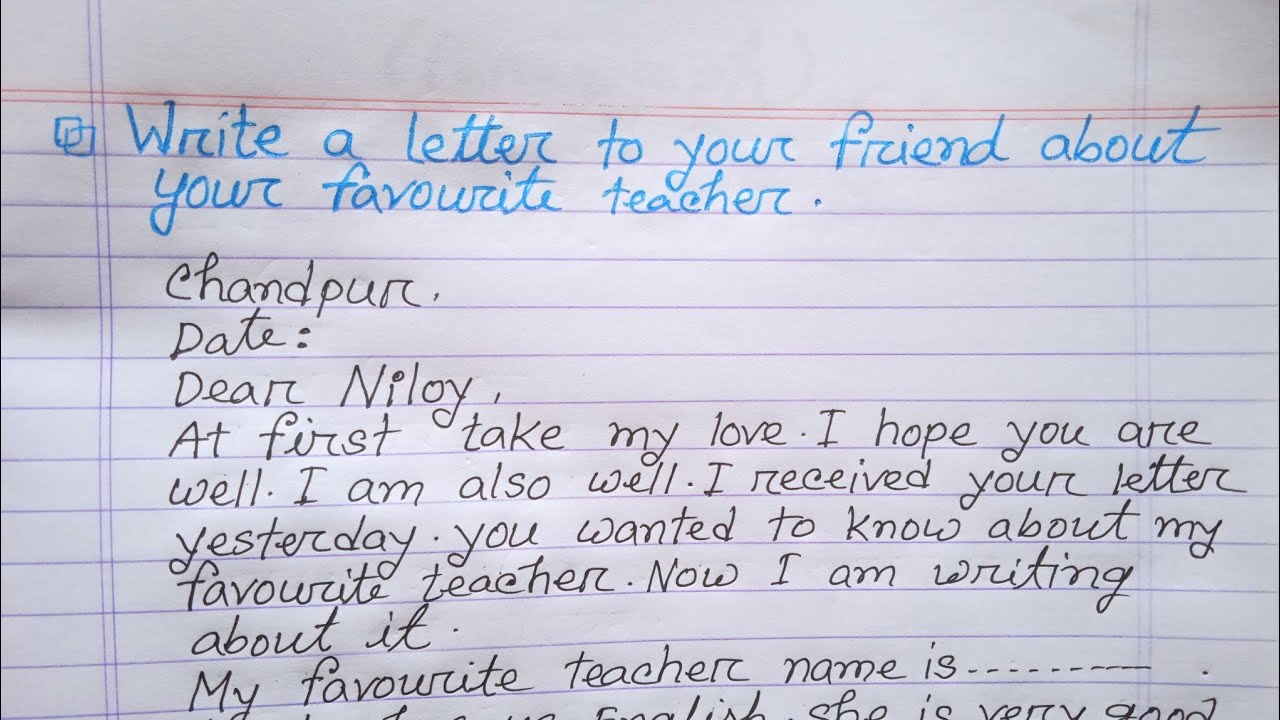 Write a letter to your friend about
your favourite teacher.
Chandpur.
Date:
Dear Niloy,
At first take my love. I hope you are
well. I am also well. I received your letter
yesterday. you wanted to know about my
favourite teacher. Now I am writing
about it.
My favourite teacher name is---------.
English. she is very good